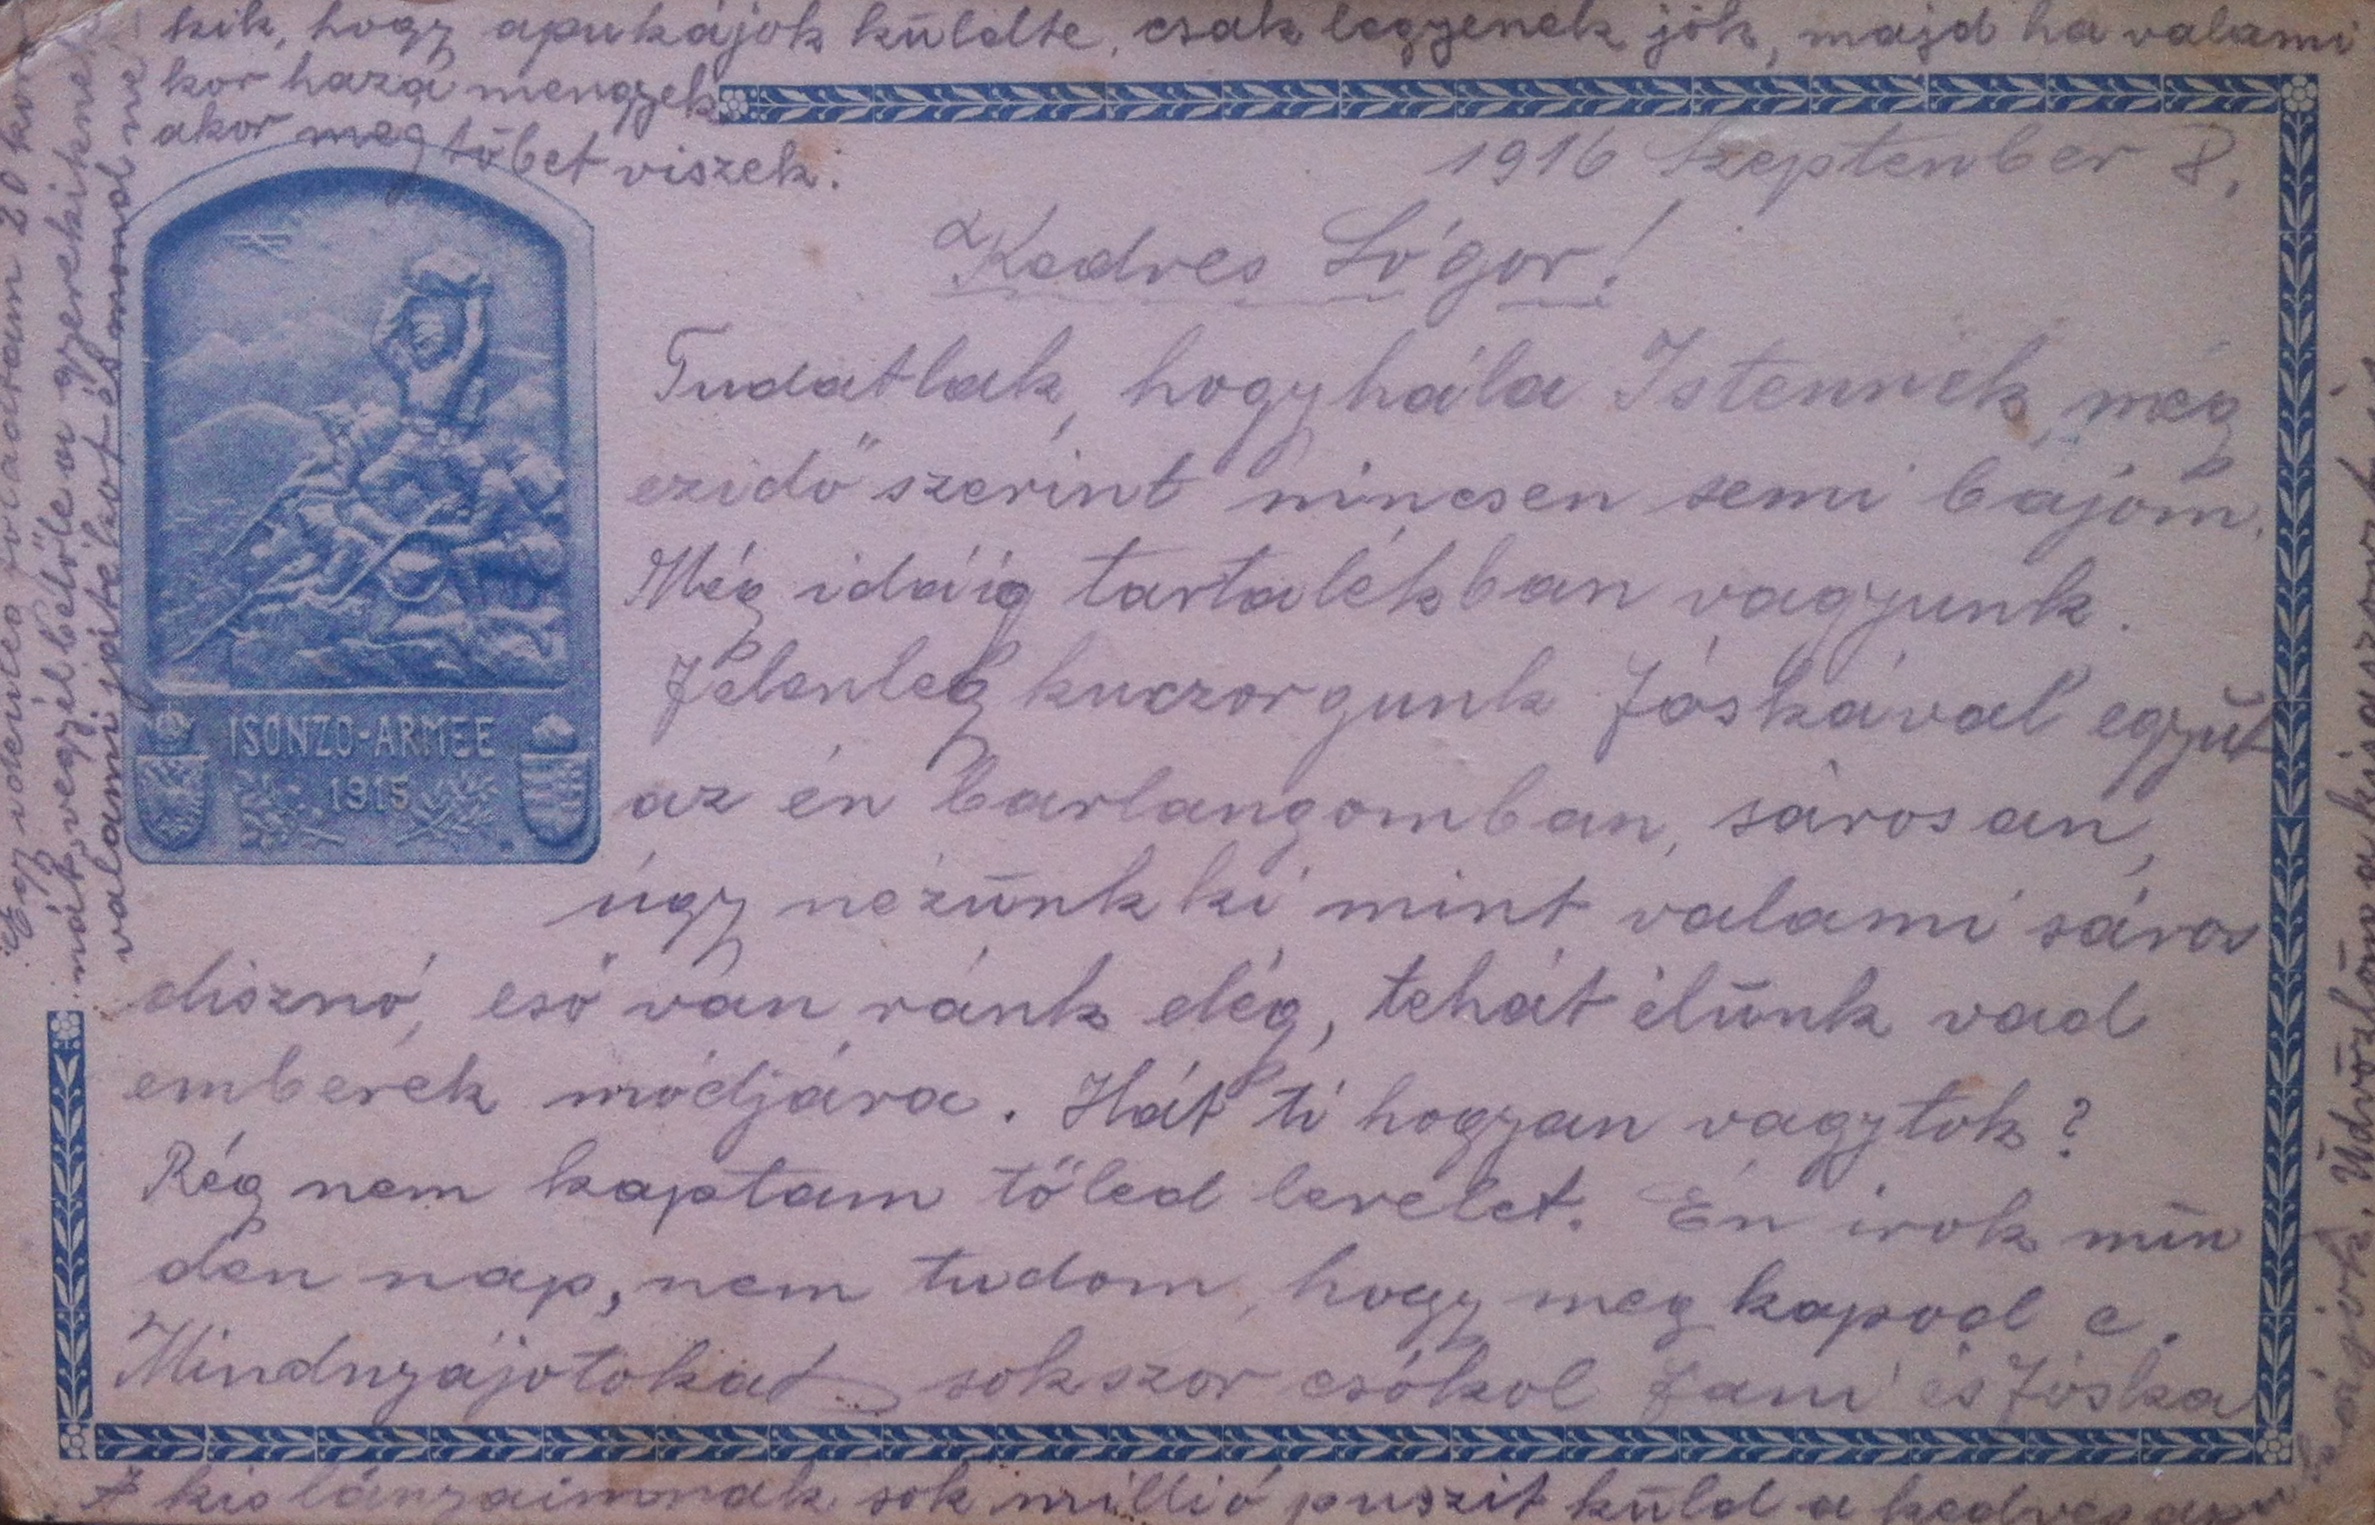 1916 Szeptember 8.
Kedves Sógor!
Tudatlak, hogy hála Istennek, még
ezidő szerint nincsen semi bajom.
Még idáig tartalékban vagyunk.
Jelenleg kuczorgunk Jóskával együt
az én barlangomban, sárosan,
úgy nézünk ki mint valami sáros
disznó, eső van ránk elég, tehát élünk vad
emberek módjára. Hát ti hogyan vagytok?
Rég nem kaptam tőled levelet. Én irok min
den nap, nem tudom, hogy meg kapod e.
Mindnyájotokat sokszor csókol Jani és Jóska
A kis lányaimnak sok millió puszit küld a kedves apu
Üdvözlöm a
Egy 20 kor
nát, vegyél belőle a gyerekiknek
valami játékot és mond ne
kik, hogy apukájok küldte, csak legyenek jók, majd ha valami
kor haza mengyek
akor meg töbet viszek.
ISONZO-ARMEE
1915